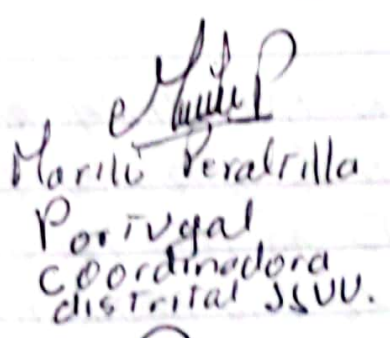 Marilú Peralrilla
Portugal
Coordinadora
distrital JJVV.